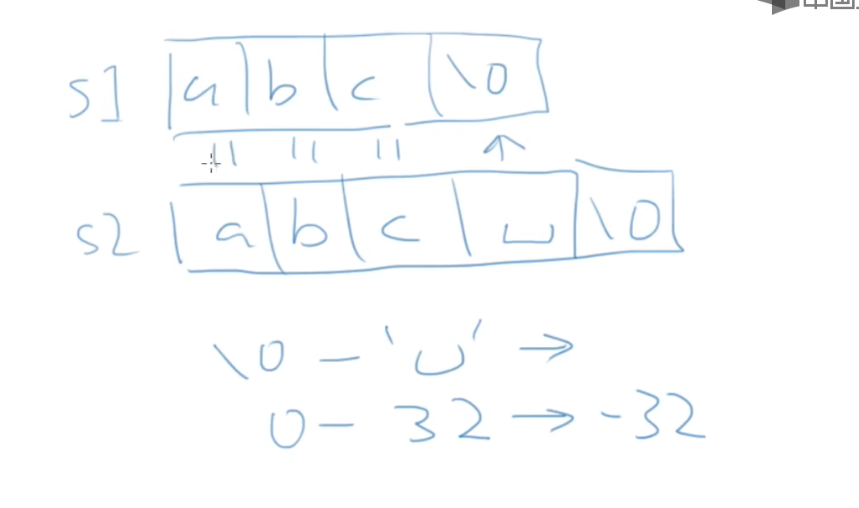 中国
s1 a b c \0
|| || || ↑
s2 a b c ␣ \0
\0 - '␣' →
0 - 32 → -32